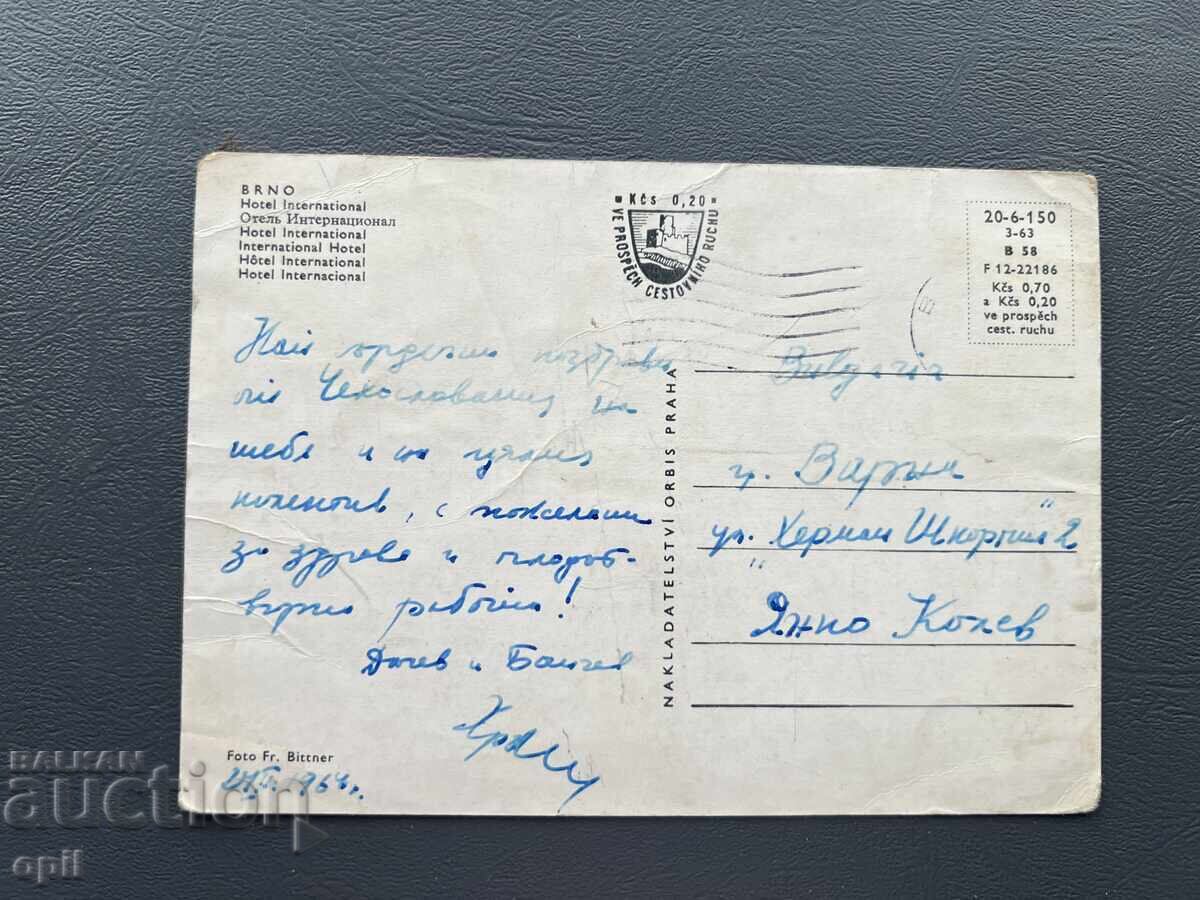 BRNO
Hotel International
Отель Интернационал
Hotel International
International Hotel
Hôtel International
Hotel Internacional
Kčs 0,20
VE PROSPĚCH CESTOVNÍHO RUCHU
20-6-150
3-63
B 58
F 12-22186
Kčs 0,70
a Kčs 0,20
ve prospěch
cest. ruchu
Най сърдечни поздрави
Чехословакия на
тебе и на целия
колектив, с пожелания
за здраве и плодот-
ворна работа!
Дочев и
Foto Fr. Bittner
1964г.
NAKLADATELSTVÍ ORBIS PRAHA
Bulgaria
гр. Варна
ул. "Херман Шкорпил" 2
Янко Колев
BALKAN
auction
opil